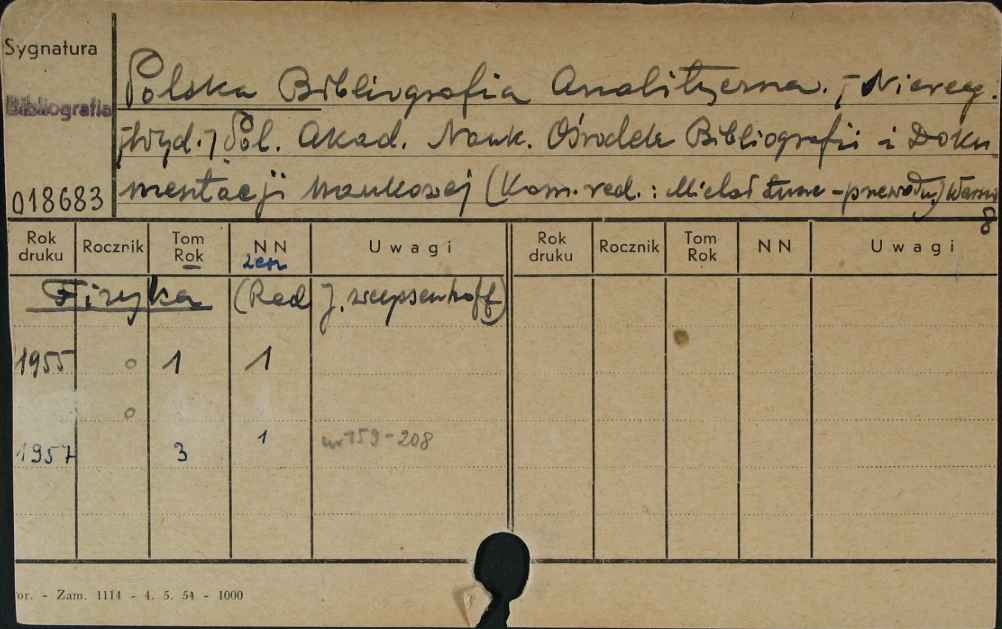 Sygnatura
Polska Bibliografia Analityczna. [Niereg.
Bibliografia
[Wyd.] Pol. Akad. Nauk. Ośrodek Bibliografii i Doku
018683
mentacji Naukowej (Kom. red.:
8
Rok druku Rocznik Tom Rok NN zesz Uwagi Rok druku Rocznik Tom Rok NN Uwagi
Fizyka (Red J.
1955 1 1
1957 3 1 nr 159-208
or. - Zam. 1114 - 4. 5. 54 - 1000